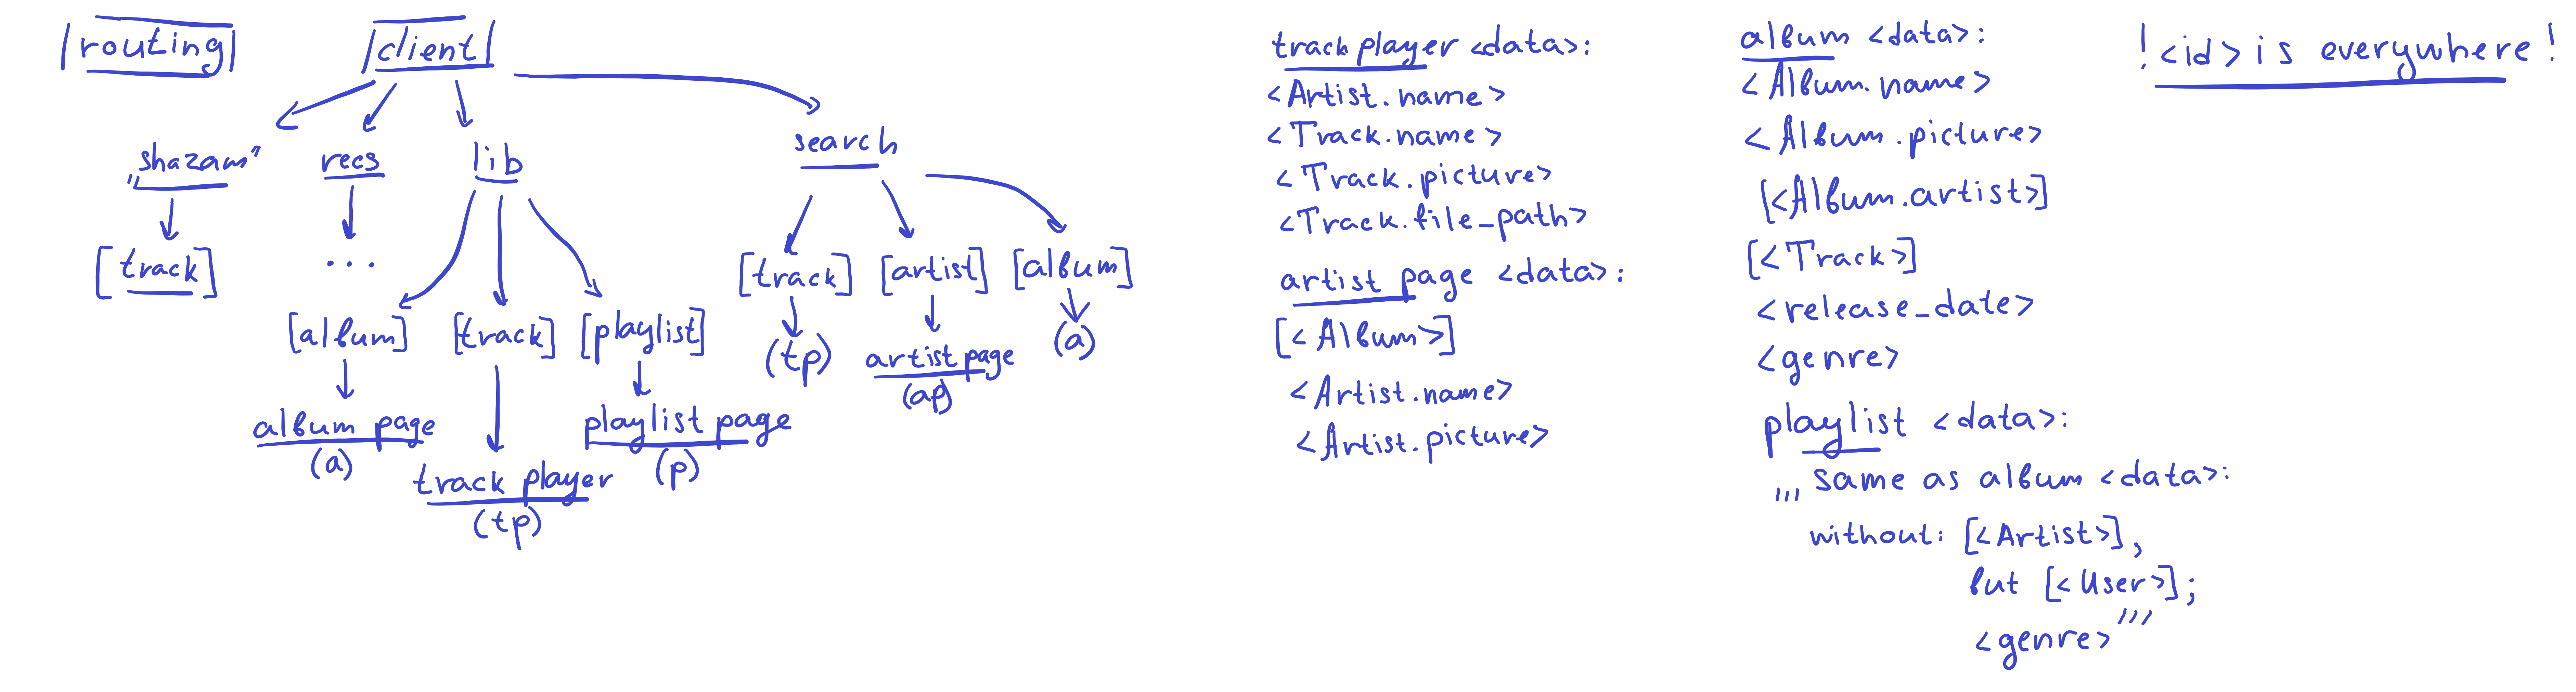 |routing|
|client|
„shazam”
recs
lib
search
[track]
...
[album]
[track]
[playlist]
album page
(a)
track player
(tp)
playlist page
(p)
[track]
[artist]
[album]
(tp)
artist page
(ap)
(a)
track player <data>:
<Artist.name>
<Track.name>
<Track.picture>
<Track.file_path>
artist page <data>:
[<Album>]
<Artist.name>
<Artist.picture>
album <data>:
<Album.name>
<Album.picture>
[<Album.artist>]
[<Track>]
<release_date>
<genre>
playlist <data>:
,,, same as album <data>:
without: [<Artist>],
but [<User>];
<genre> '''
! <id> is everywhere !